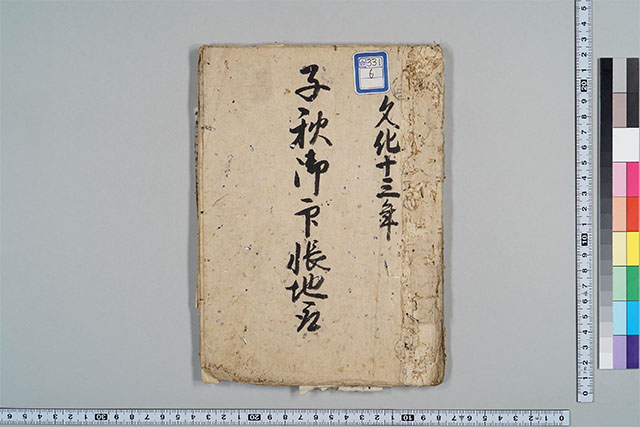 331
6
文化十三年
子秋御帳地